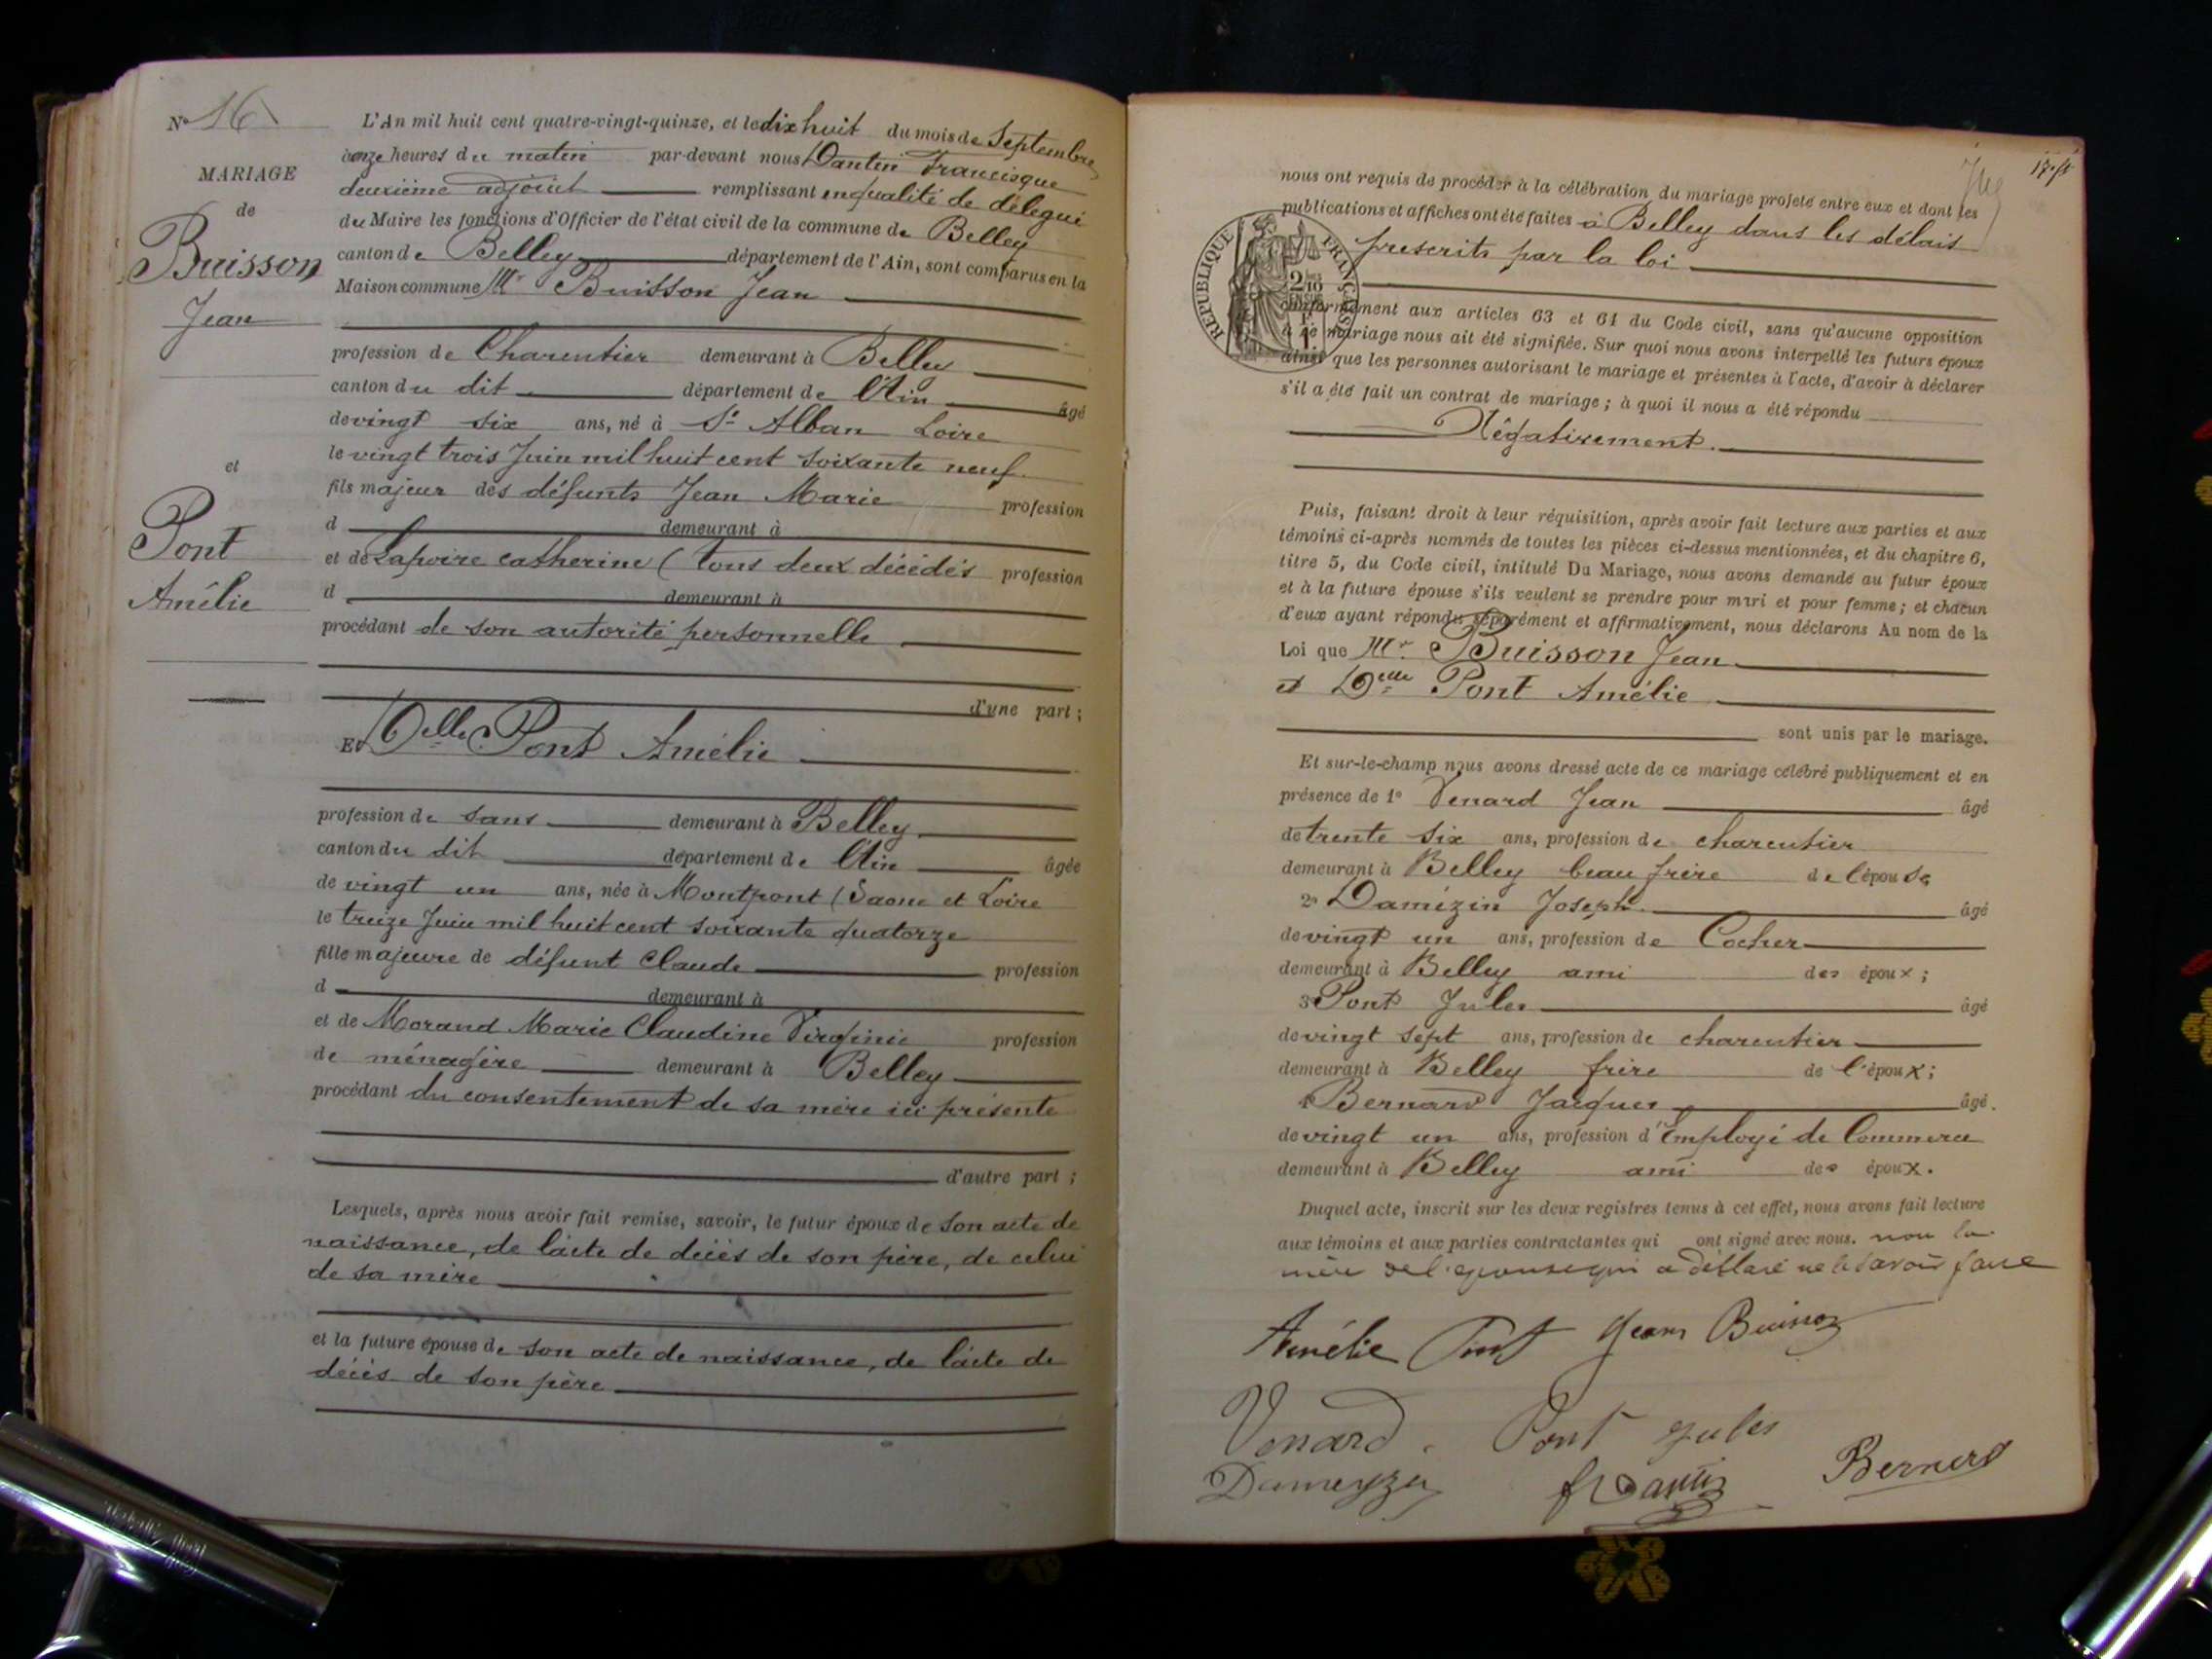 N° 16
MARIAGE
de
Buisson
Jean
et
Pont
Amélie
L'An mil huit cent quatre-vingt-quinze, et le dix huit du mois de Septembre
onze heures du matin par-devant nous Dantin Francisque
deuxième adjoint remplissant en qualité de délégué
du Maire les fonctions d'Officier de l'état civil de la commune de Belley
canton de Belley département de l'Ain, sont comparus en la
Maison commune Mr Buisson Jean
profession de Charcutier demeurant à Belley
canton du dit département de l'Ain âgé
de vingt six ans, né à St Alban Loire
le vingt trois Juin mil huit cent soixante neuf
fils majeur des défunts Jean Marie profession
d demeurant à
et de Lapoire catherine ( tous deux décédés profession
d demeurant à
procédant de son autorité personnelle
d'une part ;
Et Delle Pont Amélie
profession de sans demeurant à Belley
canton du dit département de l'Ain âgée
de vingt un ans, née à Montpont (Saone et Loire
le treize Juin mil huit cent soixante quatorze
fille majeure de défunt Claude profession
d demeurant à
et de Morand Marie Claudine Virginie profession
de ménagère demeurant à Belley
procédant du consentement de sa mère ici présente
d'autre part ;
Lesquels, après nous avoir fait remise, savoir, le futur époux de son acte de
naissance, de l'acte de décès de son père, de celui
de sa mère
et la future épouse de son acte de naissance, de l'acte de
décès de son père
nous ont requis de procéder à la célébration du mariage projeté entre eux et dont les
publications et affiches ont été faites à Belley dans les délais
prescrits par la loi
RÉPUBLIQUE FRANÇAISE
conformément aux articles 63 et 64 du Code civil, sans qu'aucune opposition
à ce mariage nous ait été signifiée. Sur quoi nous avons interpellé les futurs époux
ainsi que les personnes autorisant le mariage et présentes à l'acte, d'avoir à déclarer
s'il a été fait un contrat de mariage ; à quoi il nous a été répondu
Négativement.
Puis, faisant droit à leur réquisition, après avoir fait lecture aux parties et aux
témoins ci-après nommés de toutes les pièces ci-dessus mentionnées, et du chapitre 6,
titre 5, du Code civil, intitulé Du Mariage, nous avons demandé au futur époux
et à la future épouse s'ils veulent se prendre pour mari et pour femme ; et chacun
d'eux ayant répondu séparément et affirmativement, nous déclarons Au nom de la
Loi que Mr Buisson Jean
et Delle Pont Amélie
sont unis par le mariage.
Et sur-le-champ nous avons dressé acte de ce mariage célébré publiquement et en
présence de 1° Venard Jean âgé
de trente six ans, profession de charcutier
demeurant à Belley beau frère de l'épouse
2° Damézin Joseph âgé
de vingt un ans, profession de Cocher
demeurant à Belley ami des époux ;
3° Pont Jules âgé
de vingt sept ans, profession de charcutier
demeurant à Belley frère de l'époux ;
4° Bernard Jacques âgé
de vingt un ans, profession d'Employé de Commerce
demeurant à Belley ami des époux.
Duquel acte, inscrit sur les deux registres tenus à cet effet, nous avons fait lecture
aux témoins et aux parties contractantes qui ont signé avec nous. non la
mère de l'épouse qui a déclaré ne le savoir faire
Amélie Pont Jean Buisson
Venard Pont Jules
Dameyzin fr Dantin Bernard